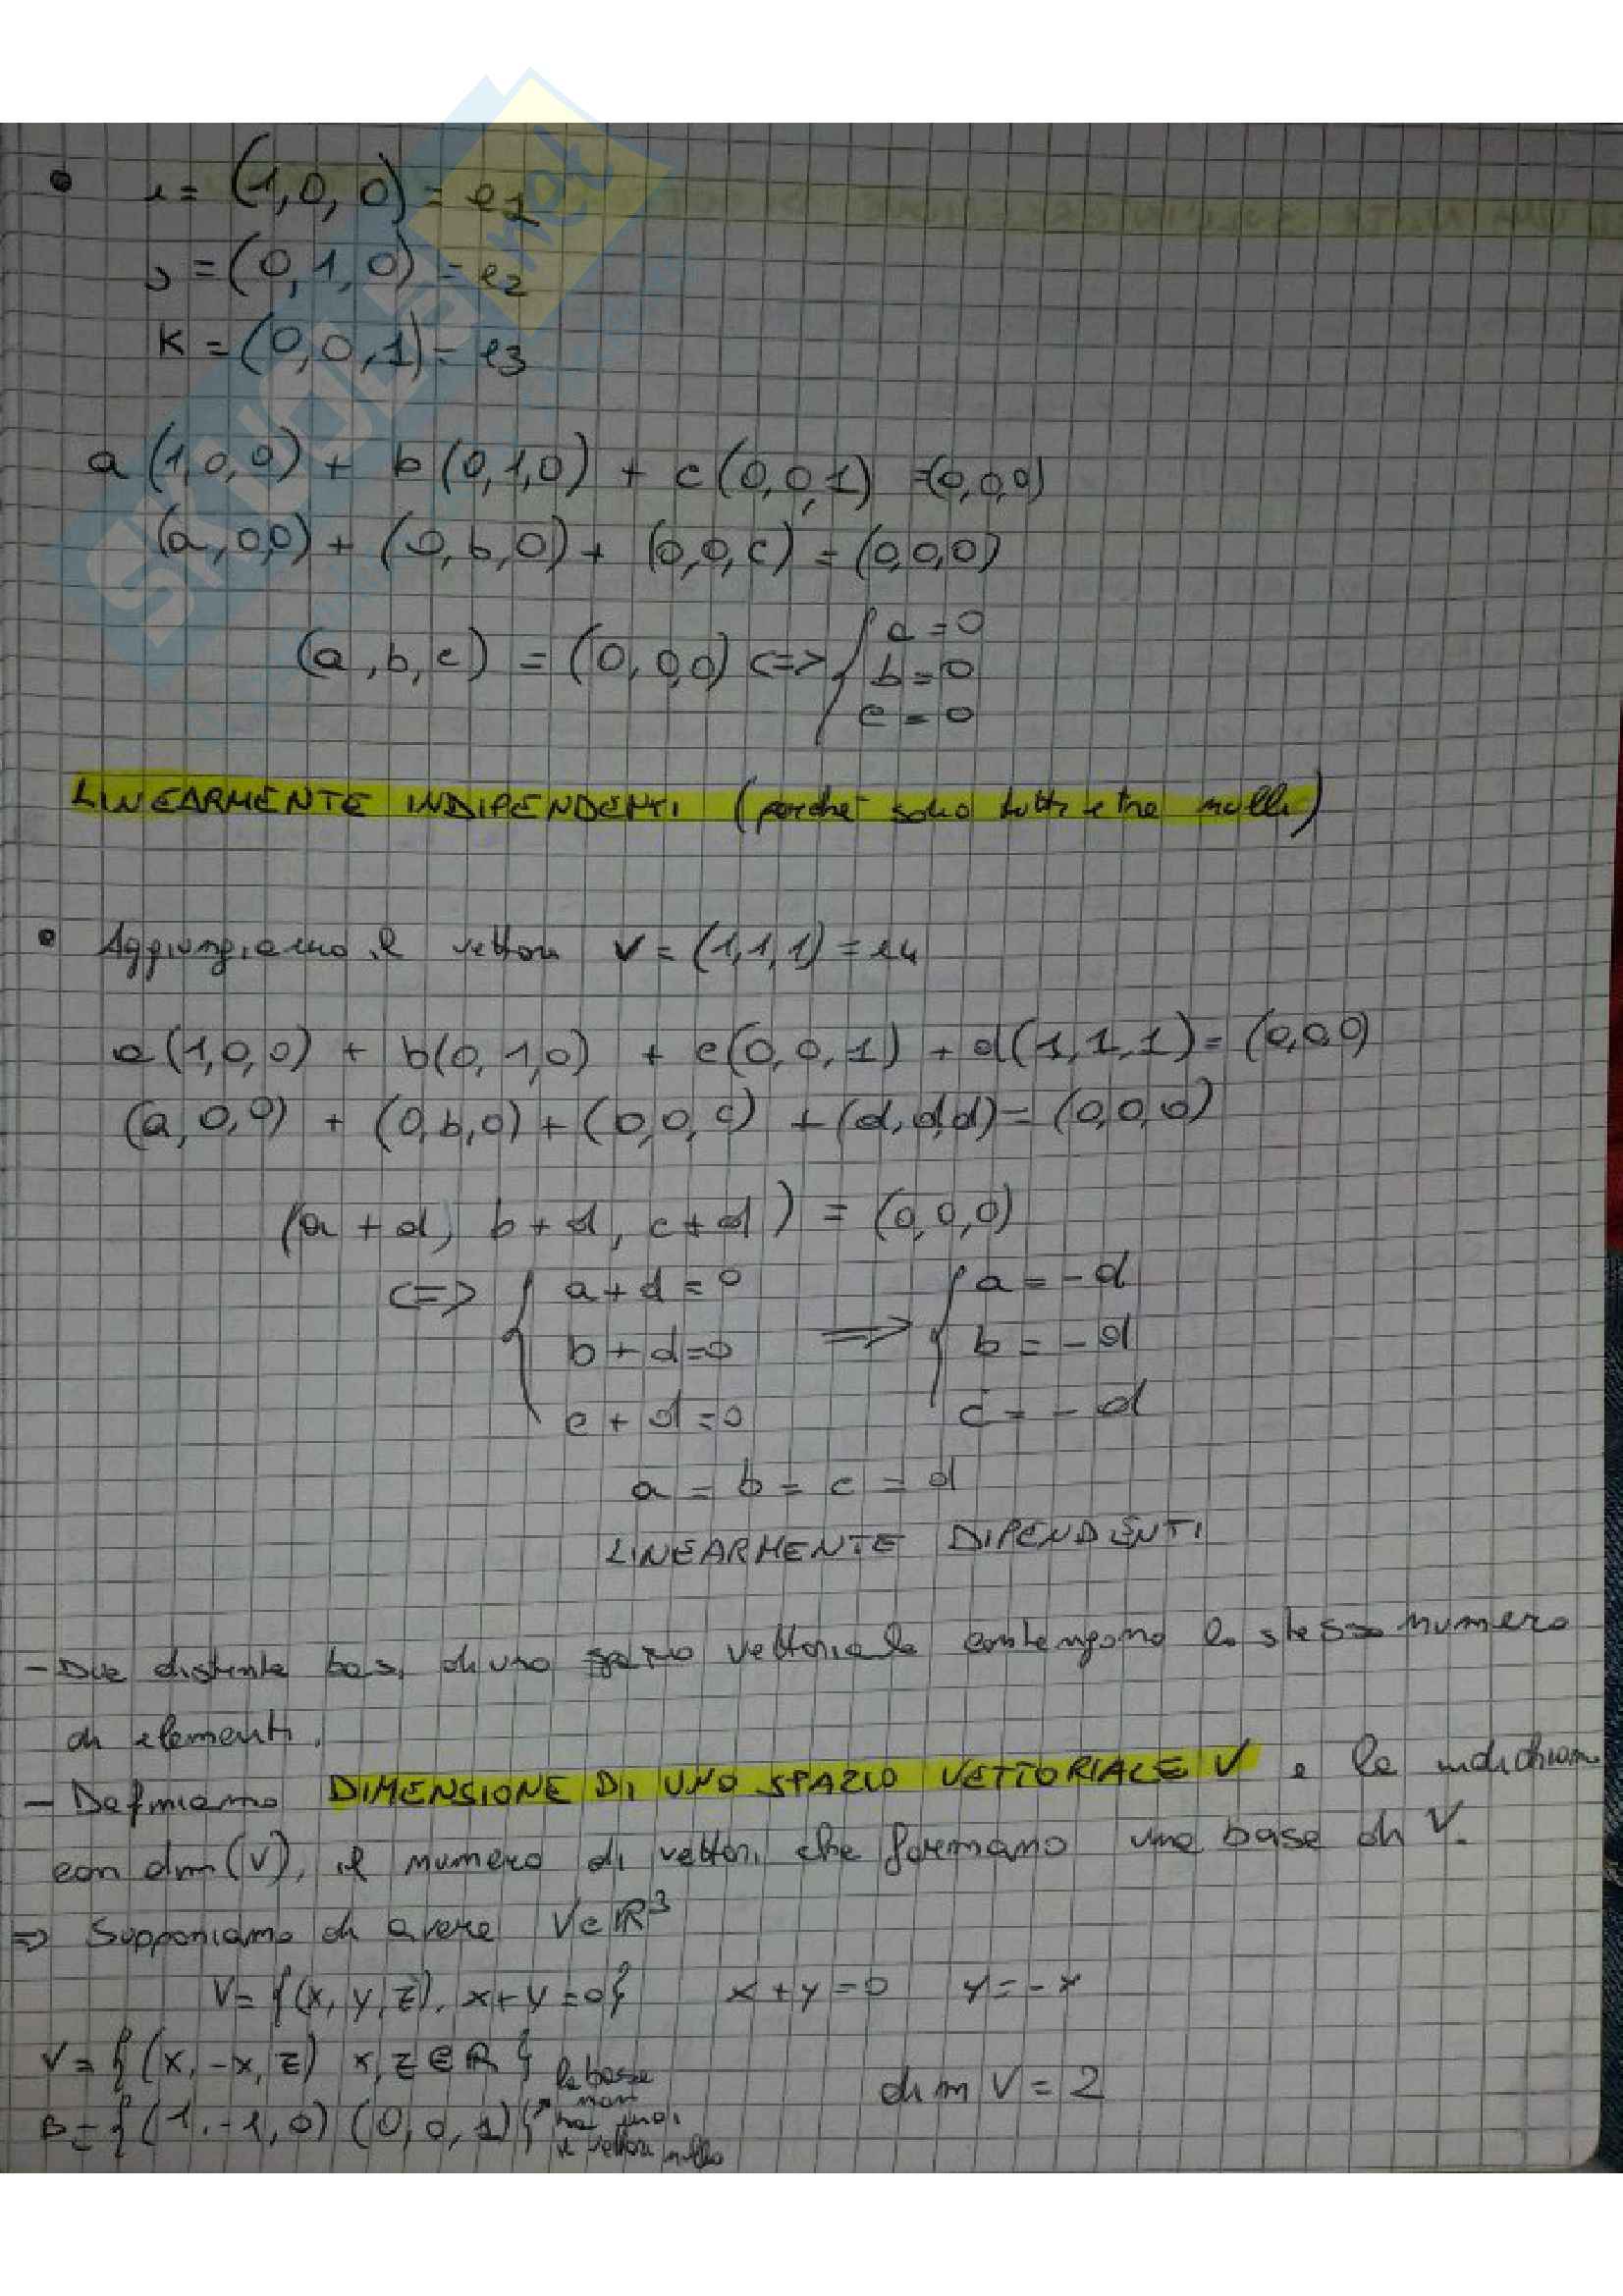 • i = (1,0,0) = e1
J = (0,1,0) = e2
K = (0,0,1) = e3
a(1,0,0) + b(0,1,0) + c(0,0,1) = (0,0,0)
(a,0,0) + (0,b,0) + (0,0,c) = (0,0,0)
(a,b,c) = (0,0,0) <=> { a = 0
b = 0
c = 0
LINEARMENTE INDIPENDENTI (perché sono tutti e tre nulli)
• Aggiungiamo il vettore v = (1,1,1) = e4
a(1,0,0) + b(0,1,0) + c(0,0,1) + d(1,1,1) = (0,0,0)
(a,0,0) + (0,b,0) + (0,0,c) + (d,d,d) = (0,0,0)
(a+d, b+d, c+d) = (0,0,0)
<=> { a+d=0 => { a = -d
b+d=0 b = -d
c+d=0 c = -d
a = b = c = d
LINEARMENTE DIPENDENTI
- Due distinte basi di uno spazio vettoriale contengono lo stesso numero
di elementi.
- Definiamo DIMENSIONE DI UNO SPAZIO VETTORIALE V e la indichiamo
con dim(V), il numero di vettori che formano una base di V.
=> Supponiamo di avere V∈R³
V = {(x,y,z), x+y=0} x+y=0 y=-x
V = {(x,-x,z) x,z∈R}
B = {(1,-1,0) (0,0,1)} → la base
non
ha mai
il vettore nullo
dim V = 2
SKUOLA.net